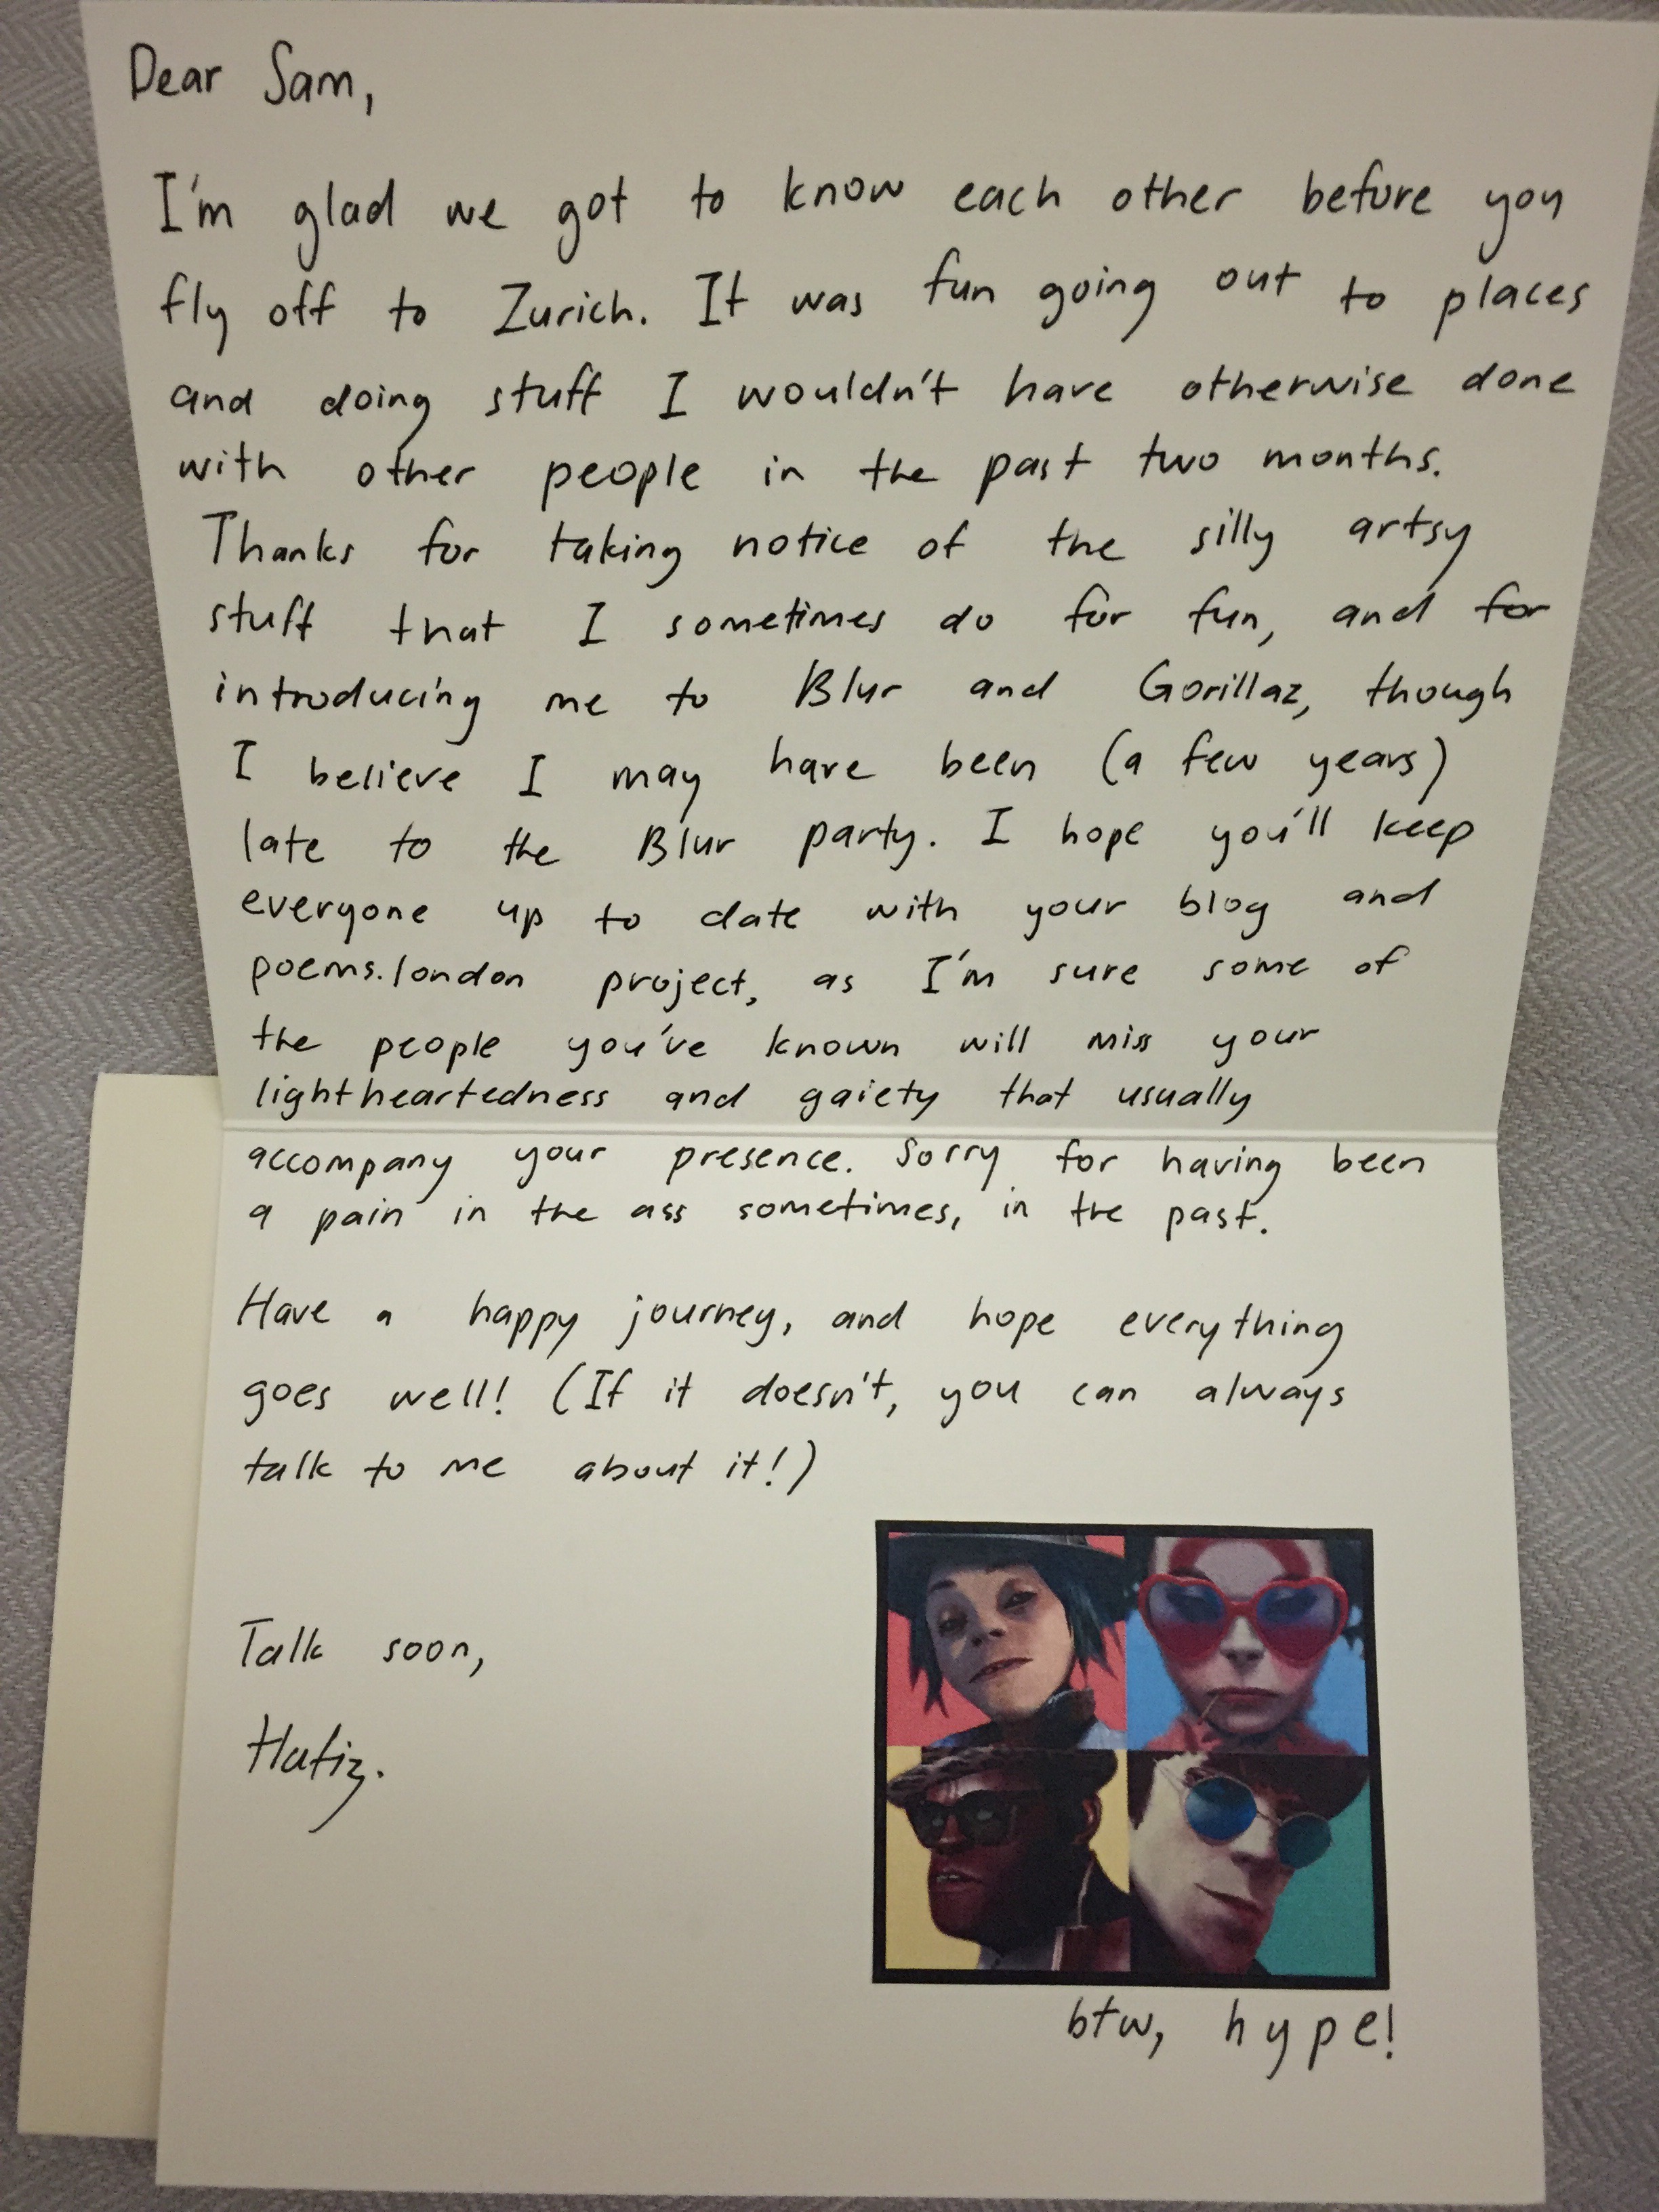 Dear Sam,
I'm glad we got to know each other before you
fly off to Zurich. It was fun going out to places
and doing stuff I wouldn't have otherwise done
with other people in the past two months.
Thanks for taking notice of the silly artsy
stuff that I sometimes do for fun, and for
introducing me to Blur and Gorillaz, though
I believe I may have been (a few years)
late to the Blur party. I hope you'll keep
everyone up to date with your blog and
poems.london project, as I'm sure some of
the people you've known will miss your
lightheartedness and gaiety that usually
accompany your presence. Sorry for having been
a pain in the ass sometimes, in the past.
Have a happy journey, and hope everything
goes well! (If it doesn't, you can always
talk to me about it!)
Talk soon,
Hafiz.
btw, hype!